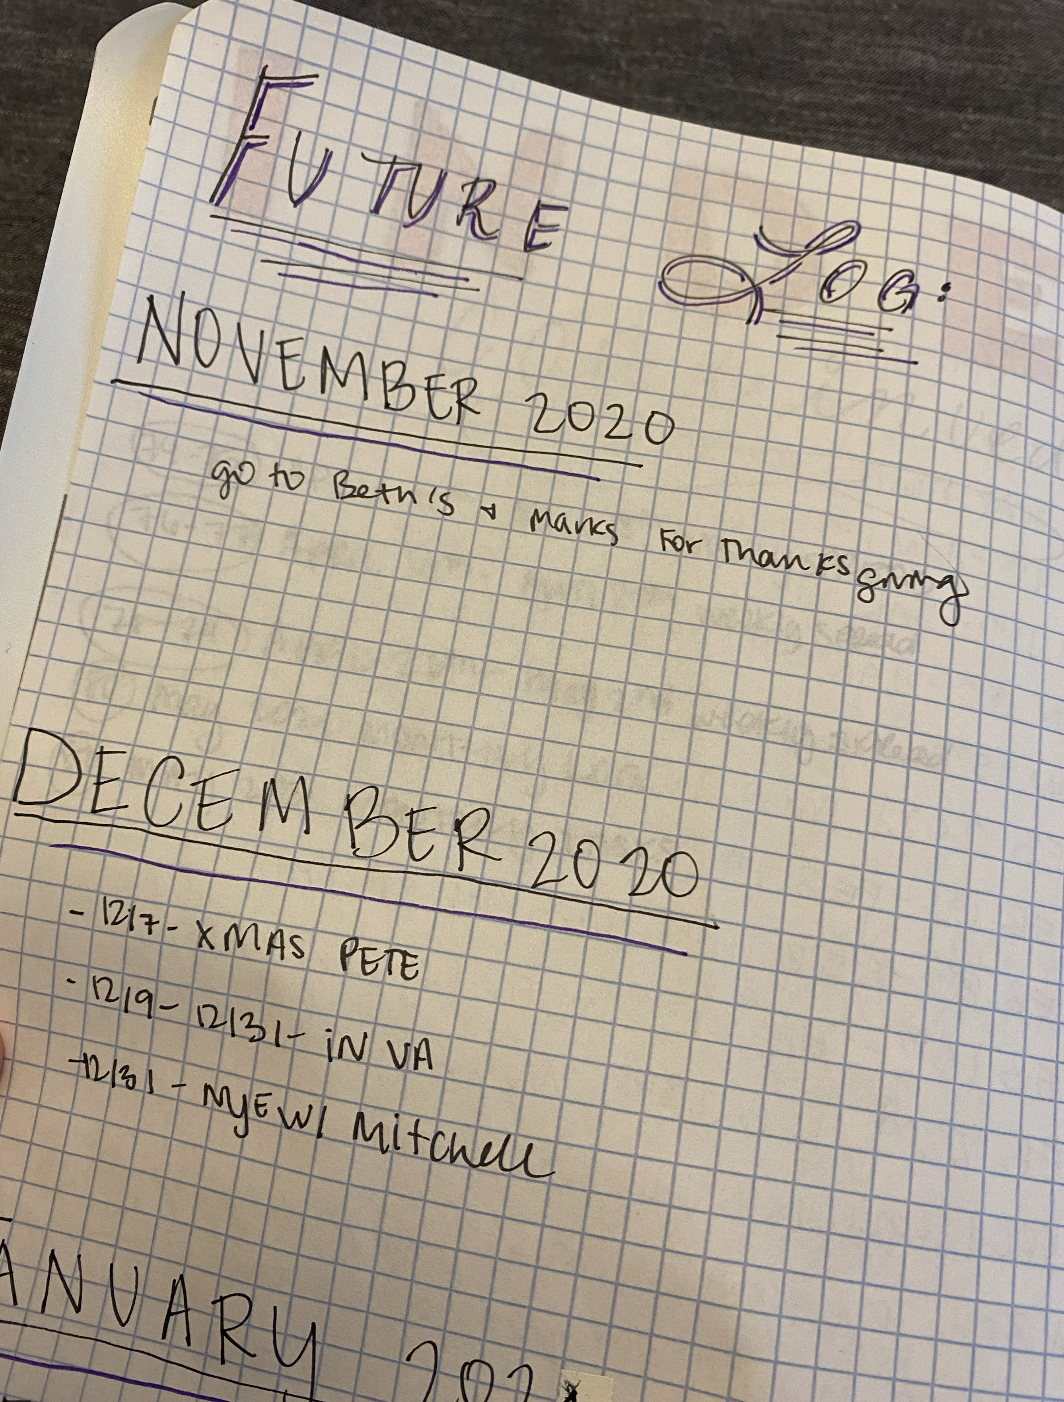 FUTURE LOG:
NOVEMBER 2020
go to Beth's + Marks For Thanksgiving
DECEMBER 2020
- 12/7 - XMAS PETE
- 12/9 - 12/31 - iN VA
- 12/31 - NYE W/ Mitchell
ANUARY 202